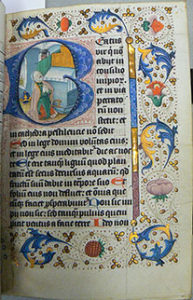 Beatus
vir qui non
abiit in
consilio
impior
et in via
peccato
rum non
stetit: et
in cathedra pestilencie non sedit
Sed in lege domini voluntas eius:
et in lege eius meditabit die ac nocte
Et erit tanquam lignum quod plan
tatum est secus decursus aquarum: qd
fructum suum dabit in tempore suo
Et folium eius non
quecunque faciet prosperabuntur
impii non sic: sed tanquam pulvis quem
proicit ventus a facie terre Ideo non